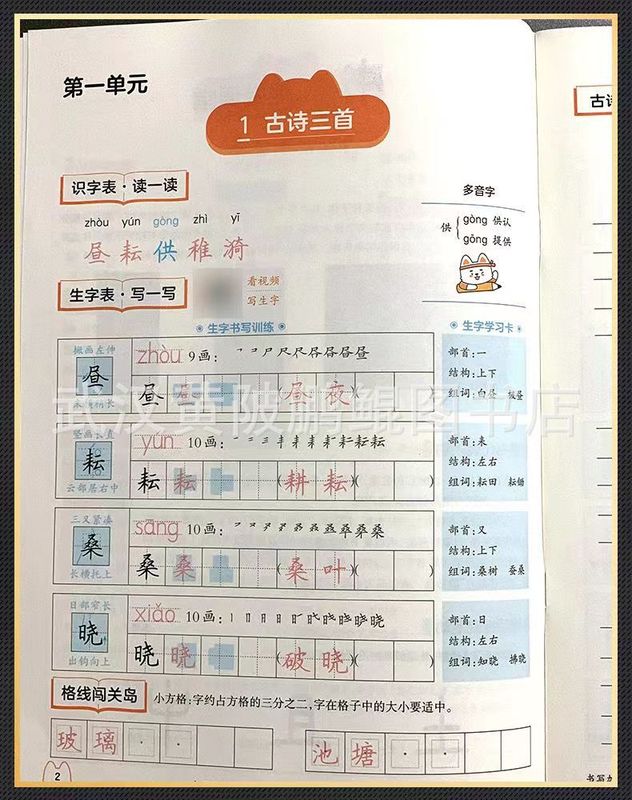 第一单元
1 古诗三首
识字表·读一读
zhòu yún gòng zhì yī
昼 耘 供 稚 漪
多音字
供
gòng 供认
gōng 提供
生字表·写一写
看视频
写生字
生字书写训练
生字学习卡
撇画左伸
昼
末横稍长
zhòu 9画:
昼 昼 (昼夜)( )
部首:一
结构:上下
组词:白昼 极昼
竖画长直
耘
云部居右中
yún 10画:
耘 耘 (耕耘)( )
部首:耒
结构:左右
组词:耘田 耘锄
三又紧凑
桑
长横托上
sāng 10画:
桑 桑 (桑叶)( )
部首:又
结构:上下
组词:桑树 蚕桑
日部窄长
晓
出钩向上
xiǎo 10画:
晓 晓 (破晓)( )
部首:日
结构:左右
组词:知晓 拂晓
格线闯关岛
小方格:字约占方格的三分之二,字在格子中的大小要适中。
玻 璃
池 塘
2
古诗
书写
武汉黄陂鹏鲲图书店